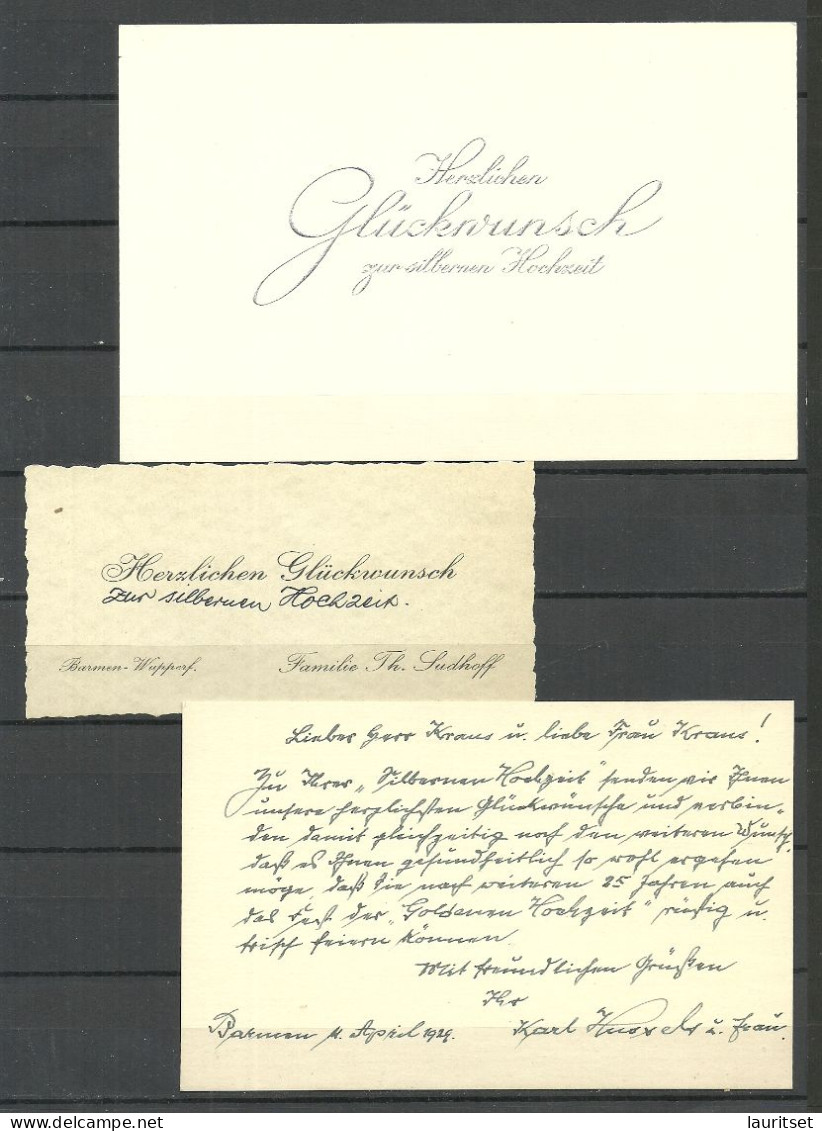 Herzlichen
Glückwunsch
zur silbernen Hochzeit
Herzlichen Glückwunsch
zur silbernen Hochzeit.
Barmen-Wupperf. Familie Th. Sudhoff
Lieber Herr Kraus u. liebe Frau Kraus!
Zu Ihrer „Silbernen Hochzeit" senden wir Ihnen
unsere herzlichsten Glückwünsche und verbin-
den damit gleichzeitig noch den weiteren Wunsch,
daß es Ihnen gesundheitlich so wohl ergehen
möge, daß Sie nach weiteren 25 Jahren auch
das Fest der „Goldenen Hochzeit" rüstig u.
frisch feiern können.
Mit freundlichen Grüßen
Ihr
Barmen April 1929. Karl u. Frau.
lauritset